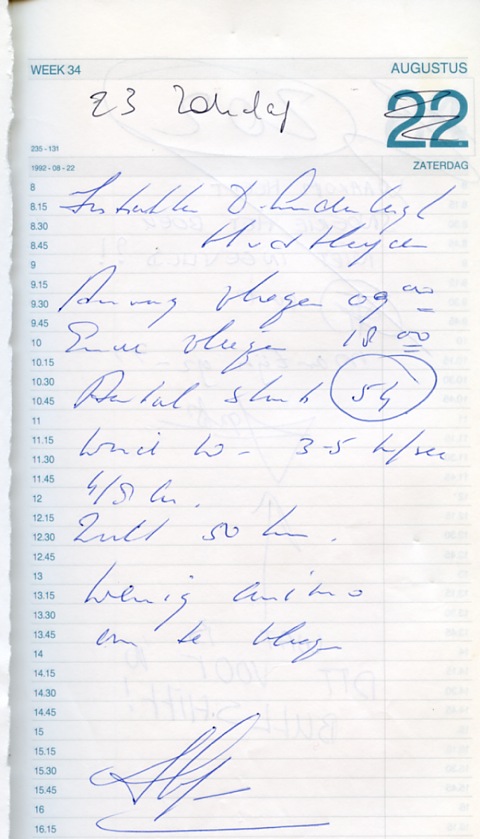 WEEK 34 AUGUSTUS
23 Zondag 22
235 - 131
1992 - 08 - 22 ZATERDAG
8
8.15
8.30
8.45
9
9.15
Aanvang vliegen 09.00
9.30
9.45
10
Einde vliegen 18.00
10.15
10.30
10.45
Aantal starts 54
11
11.15
Wind W - 3-5 m/sec
11.30
11.45
4/8 Cu.
12
12.15
12.30
Zicht 50 km.
12.45
13
13.15
Weinig animo
13.30
13.45
om te vliegen
14
14.15
14.30
14.45
15
15.15
15.30
15.45
16
16.15